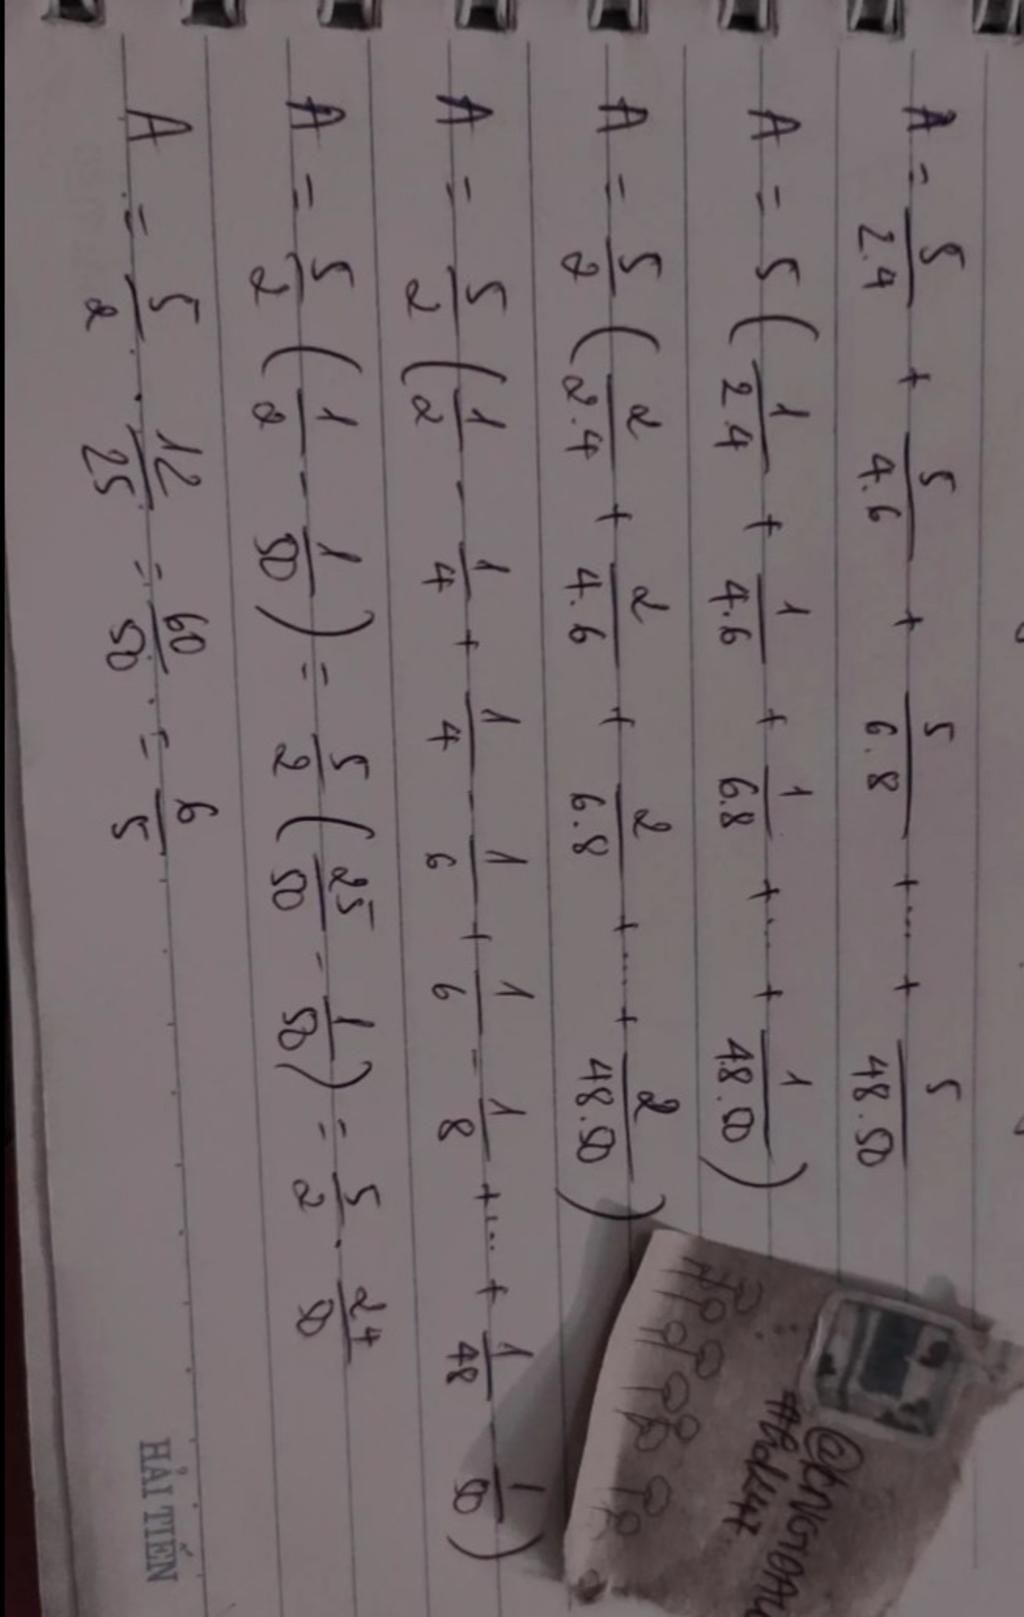 A = 5/2.4 + 5/4.6 + 5/6.8 + ... + 5/48.50
A = 5 ( 1/2.4 + 1/4.6 + 1/6.8 + ... + 1/48.50 )
A = 5/2 ( 2/2.4 + 2/4.6 + 2/6.8 + ... + 2/48.50 )
A = 5/2 ( 1/2 - 1/4 + 1/4 - 1/6 + 1/6 - 1/8 + ... + 1/48 - 1/50 )
A = 5/2 ( 1/2 - 1/50 ) = 5/2 ( 25/50 - 1/50 ) = 5/2 . 24/50
A = 5/2 . 12/25 = 60/50 = 6/5
HẢI TIẾN